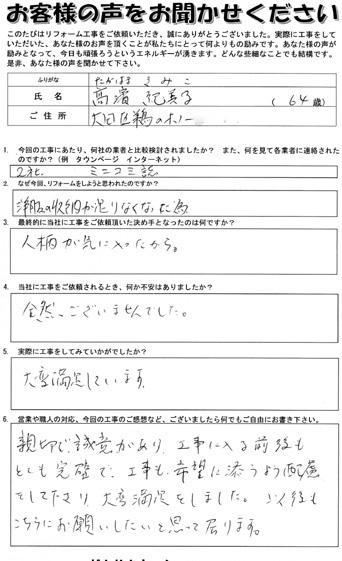 お客様の声をお聞かせください
このたびはリフォーム工事をご依頼いただき、誠にありがとうございました。実際に工事をして
いただいた、あなた様のお声を頂くことが私たちにとって何よりもの励みです。あなた様の声が
励みとなって、今日も頑張ろうというエネルギーが湧きます。どんな些細なことでも結構です。
是非、あなた様の声を聞かせて下さい。
ふりがな たかはま きみこ
氏名 高濱 紀美子 (64歳)
ご住所 大田区鵜の木
1. 今回の工事にあたり、何社の業者と比較検討されましたか? また、何を見て各業者に連絡された
のですか?(例 タウンページ インターネット)
2社 ミニコミ誌
2. なぜ今回、リフォームをしようと思われたのですか?
洋服の収納が足りなくなった為
3. 最終的に当社に工事をご依頼頂いた決め手となったのは何ですか?
人柄が気に入ったから。
4. 当社に工事をご依頼されるとき、何か不安はありましたか?
全然ございませんでした。
5. 実際に工事をしてみていかがでしたか?
大変満足しています。
6. 営業や職人の対応、今回の工事のご感想など、ございましたら何でもご自由にお書き下さい。
親切で誠意があり、工事に入る前後も
とても完璧で、工事も希望に添うよう配慮
をして下さり、大変満足をしました。今後も
こちらにお願いしたいと思って居ります。